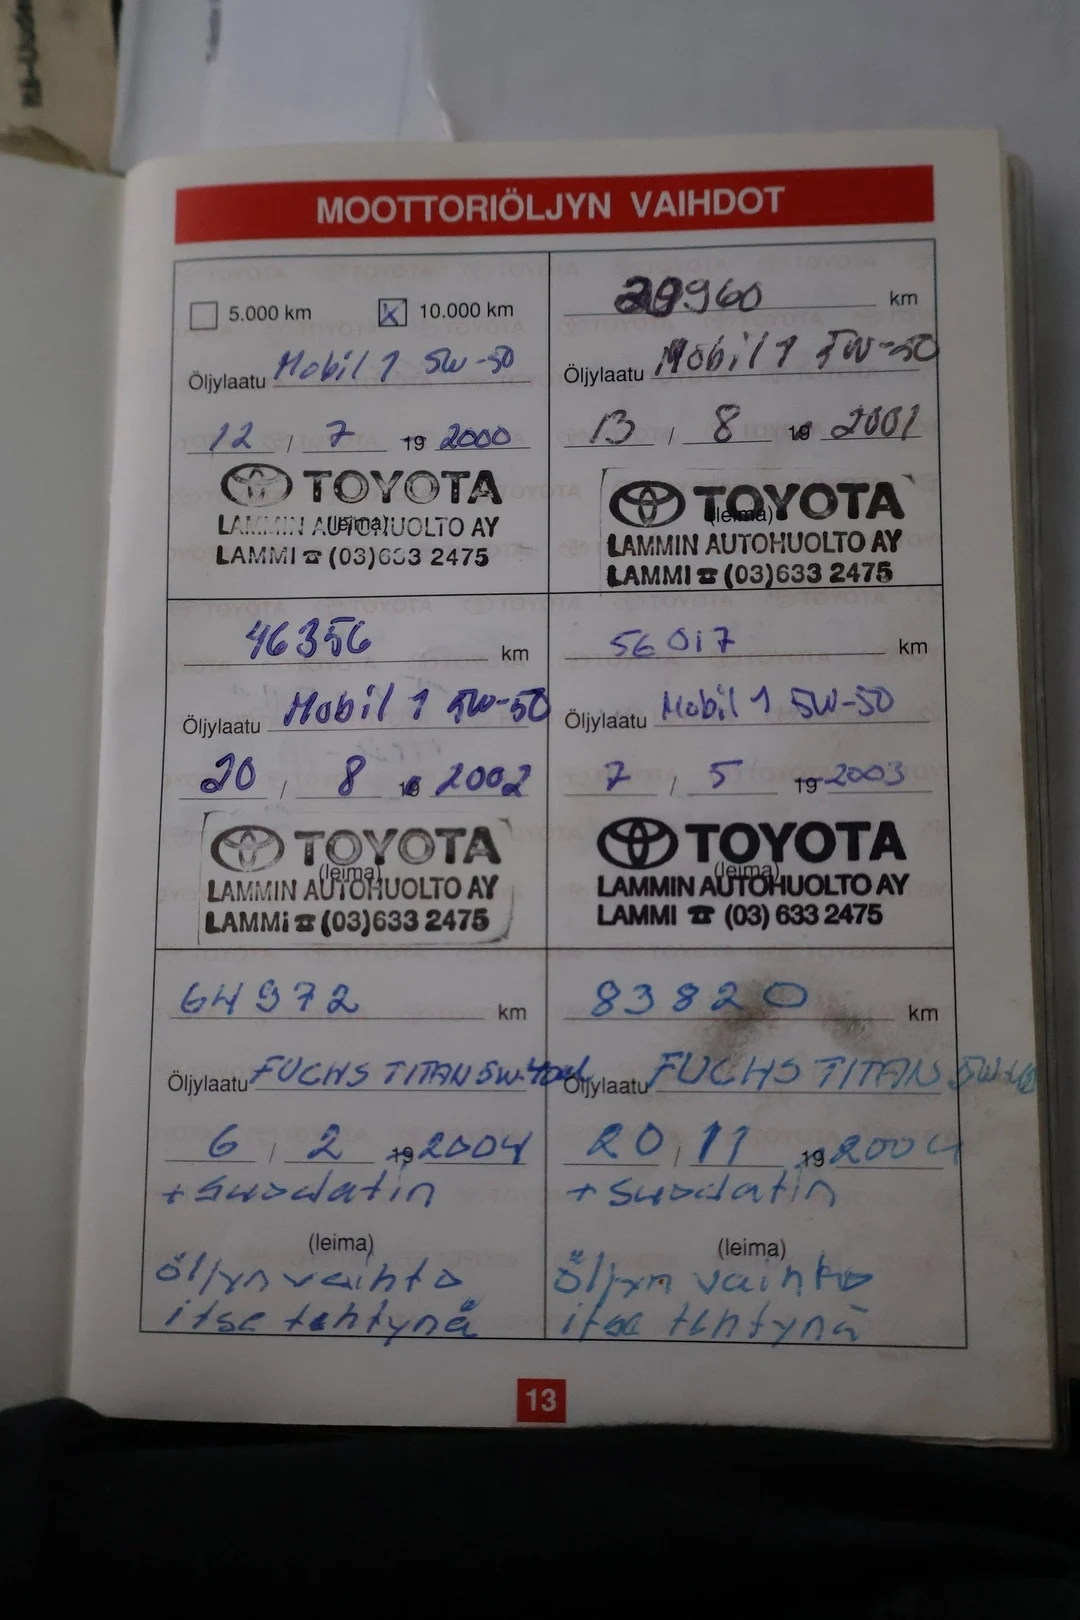 MOOTTORIÖLJYN VAIHDOT
5.000 km 10.000 km
Öljylaatu Mobil 1 5W-50
12 / 7 19 2000
TOYOTA
(leima)
LAMMIN AUTOHUOLTO AY
LAMMI ☎ (03)633 2475
29960 km
Öljylaatu Mobil 1 5W-50
13 / 8 19 2001
TOYOTA
(leima)
LAMMIN AUTOHUOLTO AY
LAMMI ☎ (03)633 2475
46356 km
Öljylaatu Mobil 1 5W-50
20 / 8 19 2002
TOYOTA
(leima)
LAMMIN AUTOHUOLTO AY
LAMMI ☎ (03)633 2475
56017 km
Öljylaatu Mobil 1 5W-50
7 / 5 19 2003
TOYOTA
(leima)
LAMMIN AUTOHUOLTO AY
LAMMI ☎ (03) 633 2475
64972 km
Öljylaatu FUCHS TITAN 5W-40
6 / 2 19 2004
+ suodatin
(leima)
öljyn vaihto
itse tehtynä
83820 km
Öljylaatu FUCHS TITAN 5W-40
20 / 11 19 2004
+ suodatin
(leima)
öljyn vaihto
itse tehtynä
13